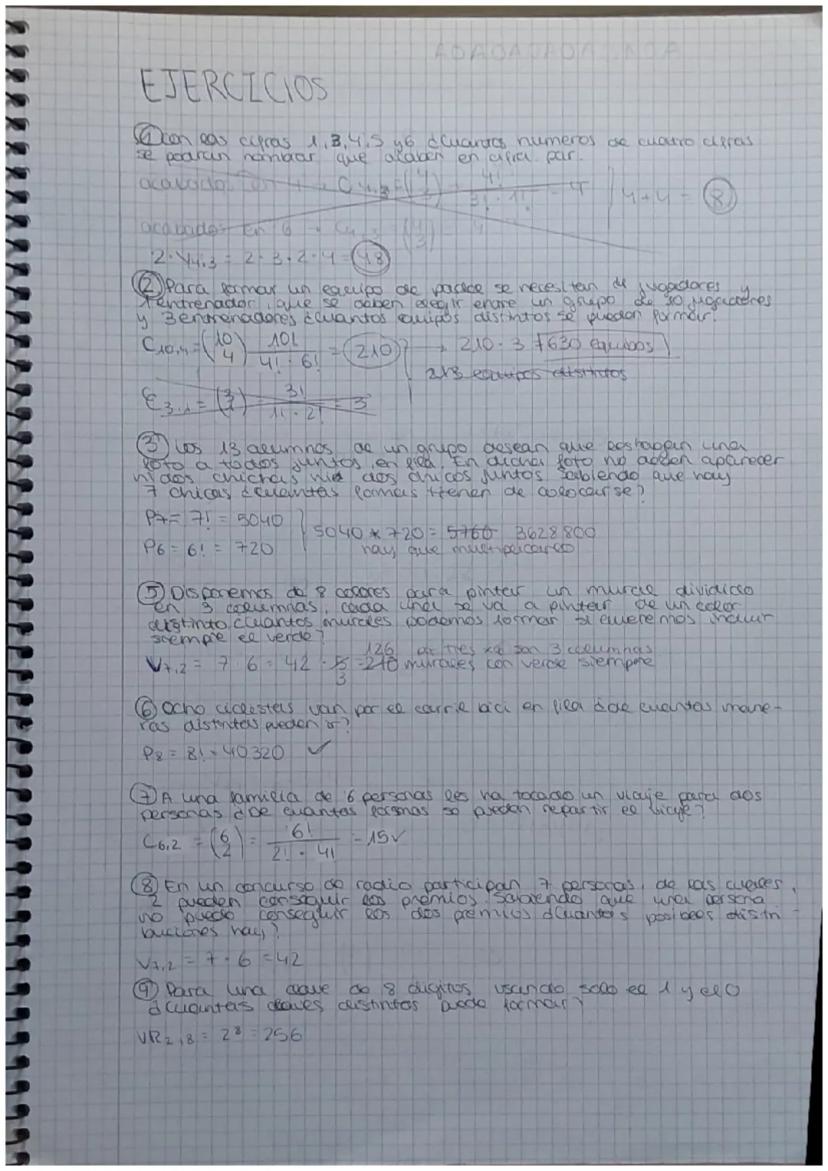 EJERCICIOS
① con las cifras 1, 3, 4, 5 y 6 ¿cuantos numeros de cuatro cifras
se podran nombrar que acaben en cifra par.
acabado 4!/3!·1! = 4 } 4+4 = 8
acabados en 6 → C4,3 (4 3)
2·V4,3 = 2·3·2·4 = 48
② Para formar un equipo de padde se necesitan 4 jugadores y
1 entrenador, que se deben elegir entre un grupo de 10 jugadores
y 3 entrenadores ¿cuantos equipos distintos se pueden formar?
C10,4 = (10 4) 10!/4!·6! = 210 } → 210·3 = 630 equipos
213 equipos distintos
C3,1 = (3 1) 3!/1!·2! = 3
③ Los 13 alumnos de un grupo desean que les hagan una
foto a todos juntos en fila. En dicha foto no deben aparecer
ni dos chicas ni dos chicos juntos sabiendo que hay
7 chicas ¿cuantas formas tienen de colocarse?
P7 = 7! = 5040
P6 = 6! = 720
} 5040 * 720 = 5760 3628800
hay que multiplicarlo
⑤ Disponemos de 8 colores para pintar un mural dividido
en 3 columnas, cada una se va a pintar de un color
distinto ¿cuantos murales podemos formar si queremos incluir
siempre el verde?
126 al tres xq son 3 columnas
V7,2 = 7·6 = 42 · 5 = 210 murales con verde siempre
3
⑥ Ocho ciclistas van por el carril bici en fila ¿de cuantas mane-
ras distintas pueden ir?
P8 = 8! = 40320 ✓
⑦ A una familia de 6 personas les ha tocado un viaje para dos
personas ¿de cuantas formas se pueden repartir el viaje?
C6,2 = (6 2) = 6!/2!·4! = 15 ✓
⑧ En un concurso de radio participan 7 personas, de las cuales,
2 pueden conseguir los premios. Sabiendo que una persona
no puede conseguir los dos premios ¿cuantas posibles distri-
buciones hay?
V7,2 = 7·6 = 42
⑨ Para una clave de 8 digitos usando solo el 1 y el 0
¿cuantas claves distintas puedo formar?
VR2,8 = 2⁸ = 256